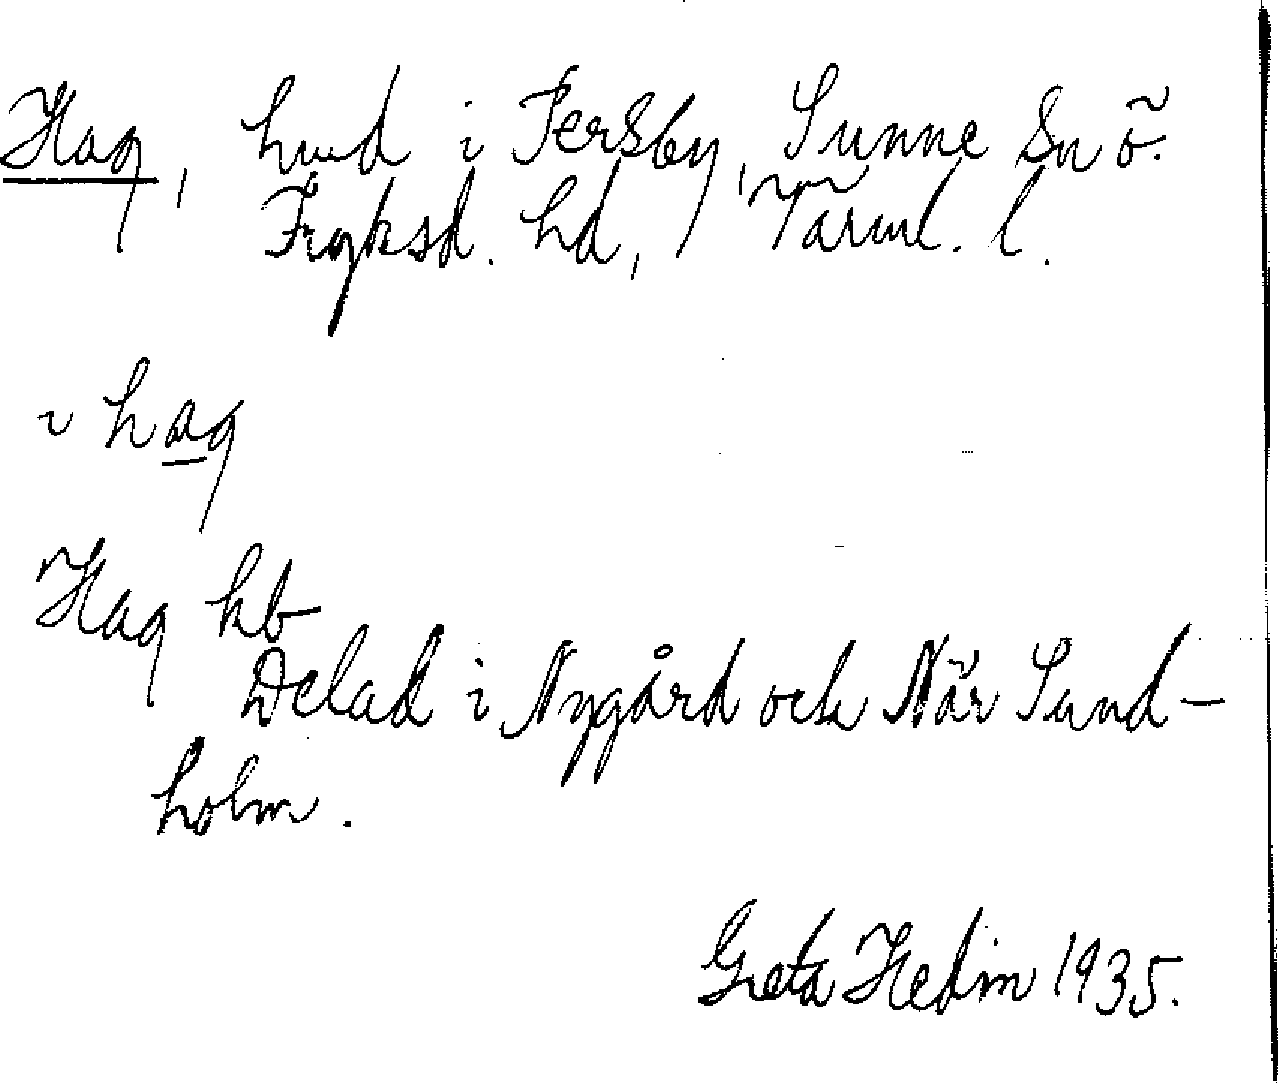 Hag, hmd i Persby, Sunne Sn ö.
Fryksd. hd, Värml. l.
i hag
Hag kb
Delad i Nygård och När Sund-
holm.
Greta Hedin 1935.